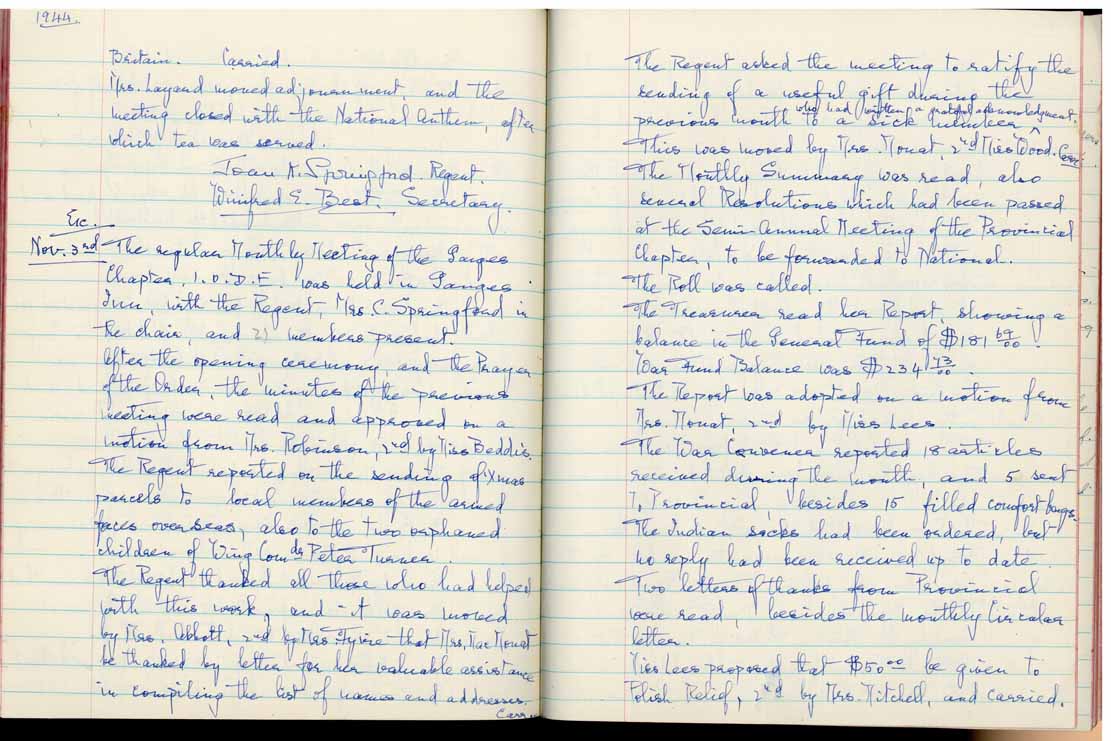 1944.
Britain. Carried.
Mrs. Layard moved adjournment, and the
meeting closed with the National Anthem, after
which tea was served.
Joan K. Springford. Regent.
Winifred E. Best. Secretary.
Etc.
Nov. 3rd The regular Monthly Meeting of the Ganges
Chapter, I.O.D.E. was held in Ganges
Inn, with the Regent, Mrs. C. Springford in
the chair, and 21 members present.
After the opening ceremony, and the Prayer
of the Order, the minutes of the previous
meeting were read and approved on a
motion from Mrs. Robinson, 2nd by Miss Beddis.
The Regent reported on the sending of Xmas
parcels to local members of the armed
forces overseas, also to the two orphaned
children of Wing Comdr Peter Turner.
The Regent thanked all those who had helped
with this work, and it was moved
by Mrs. Abbott, 2nd by Mrs. Fyvie that Mrs. Mac Mouat
be thanked by letter for her valuable assistance
in compiling the list of names and addresses.
Carr
The Regent asked the meeting to ratify the
sending of a useful gift during the
who had written a grateful acknowledgment.
previous month to a sick member ^
This was moved by Mrs. Mouat, 2nd Miss Wood. Carr
The Monthly Summary was read, also
several Resolutions which had been passed
at the Semi-Annual Meeting of the Provincial
Chapter, to be forwarded to National.
The Roll was called.
The Treasurer read her Report, showing a
balance in the General Fund of $181 69/00.
War Fund Balance was $234 43/00.
The Report was adopted on a motion from
Mrs. Mouat, 2nd by Miss Lees.
The War Convener reported 18 articles
received during the month, and 5 sent
to Provincial, besides 15 filled comfort bags.
The Indian socks had been ordered, but
no reply had been received up to date.
Two letters of thanks from Provincial
were read, besides the monthly Circular
letter.
Miss Lees proposed that $50 00 be given to
Polish Relief, 2nd by Mrs. Mitchell, and carried.